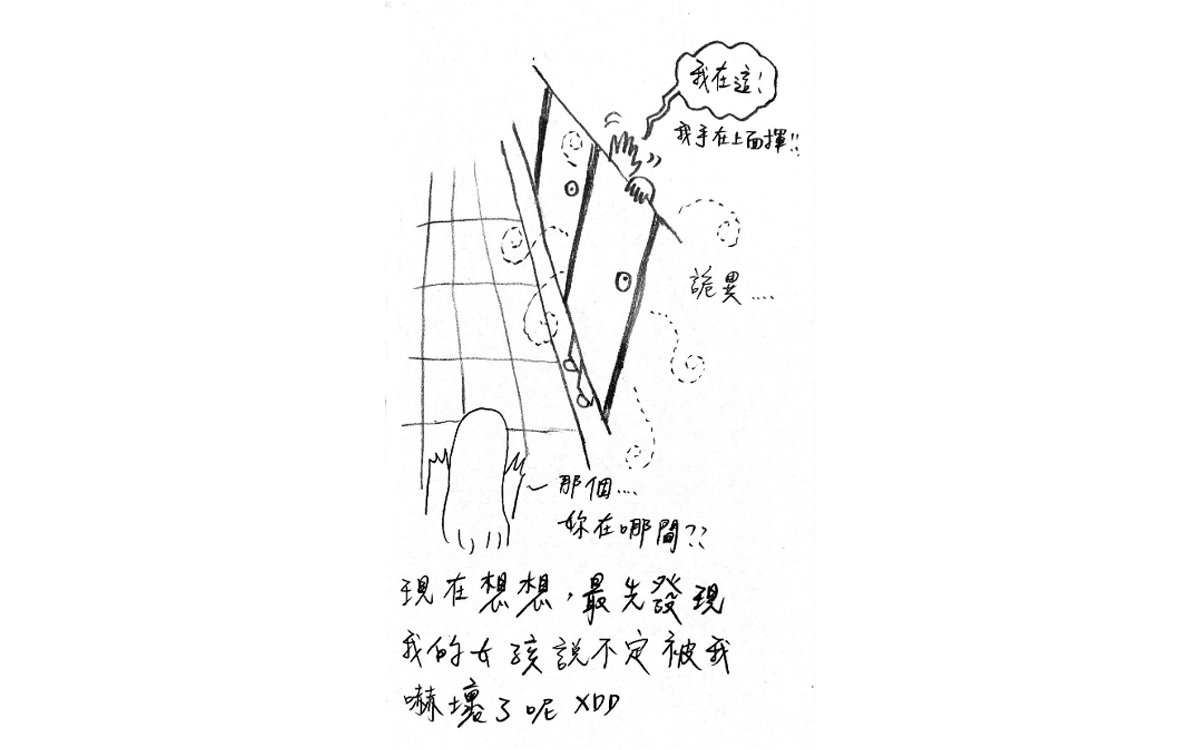 我在這!
我手在上面揮!!
詭異....
那個....
妳在哪間??
現在想想,最先發現
我的女孩說不定被我
嚇壞了呢 XDD